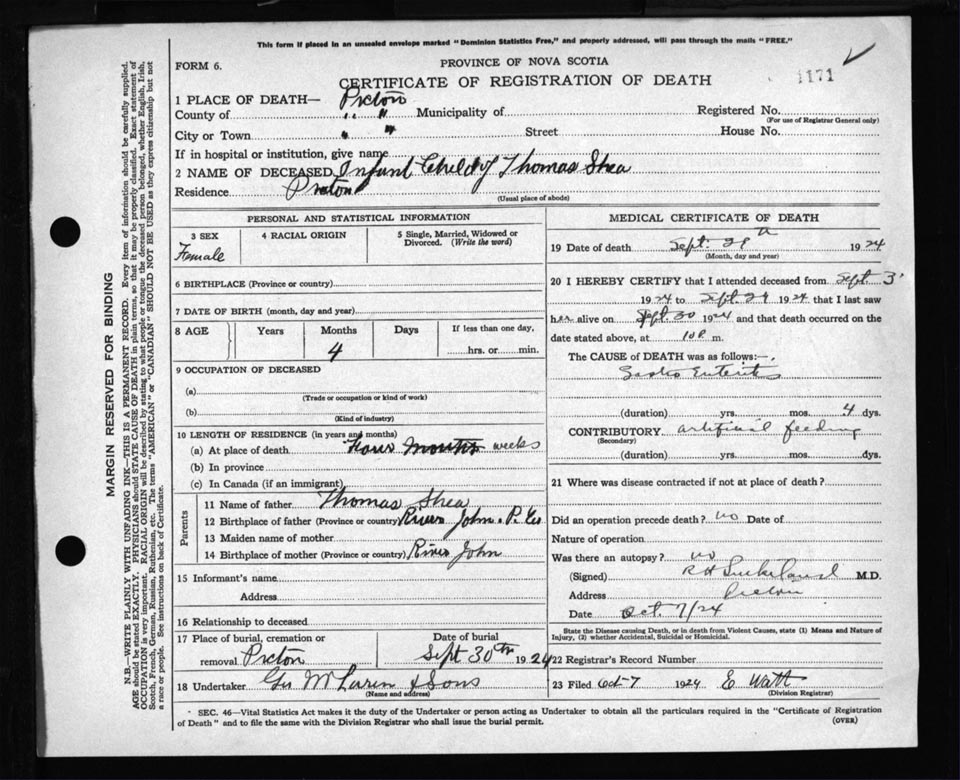 This form if placed in an unsealed envelope marked "Dominion Statistics Free," and properly addressed, will pass through the mails "FREE."
FORM 6.
PROVINCE OF NOVA SCOTIA
CERTIFICATE OF REGISTRATION OF DEATH
1171
1 PLACE OF DEATH— Pictou
County of " " Municipality of Registered No.
(For use of Registrar General only)
City or Town " " Street House No.
If in hospital or institution, give name
2 NAME OF DECEASED Infant Child of Thomas Shea
Residence Pictou
(Usual place of abode)
MARGIN RESERVED FOR BINDING
N.B.—WRITE PLAINLY WITH UNFADING INK—THIS IS A PERMANENT RECORD. Every item of information should be carefully supplied.
AGE should be stated EXACTLY. PHYSICIANS should STATE CAUSE OF DEATH in plain terms, so that it may be properly classified. Exact statement of
OCCUPATION is very important. RACIAL ORIGIN will be described by stating to what people or tongue the deceased person belonged, whether English, Irish,
Scotch, French, German, Russian, Ruthenian, etc. The terms "AMERICAN" or "CANADIAN" SHOULD NOT BE USED as they express citizenship but not
a race or people. See instructions on back of Certificate.
PERSONAL AND STATISTICAL INFORMATION
3 SEX
Female
4 RACIAL ORIGIN
5 Single, Married, Widowed or
Divorced. (Write the word)
6 BIRTHPLACE (Province or country)
7 DATE OF BIRTH (month, day and year)
8 AGE Years Months Days If less than one day,
4 hrs. or min.
9 OCCUPATION OF DECEASED
(a)
(Trade or occupation or kind of work)
(b)
(Kind of industry)
10 LENGTH OF RESIDENCE (in years and months)
(a) At place of death Four Months weeks
(b) In province
(c) In Canada (if an immigrant)
Parents
11 Name of father Thomas Shea
12 Birthplace of father (Province or country) River John. P. Co
13 Maiden name of mother
14 Birthplace of mother (Province or country) River John
15 Informant's name
Address
16 Relationship to deceased
17 Place of burial, cremation or Date of burial
removal Pictou Sept 30th 1924
18 Undertaker Geo McLaren & Sons
(Name and address)
MEDICAL CERTIFICATE OF DEATH
19 Date of death Sept. 29 1924
(Month, day and year)
20 I HEREBY CERTIFY that I attended deceased from Sept 3
1924 to Sept. 29 1924 that I last saw
her alive on Sept 30 1924 and that death occurred on the
date stated above, at m.
The CAUSE of DEATH was as follows:—
Gastro Enteritis
(duration) yrs. mos. 4 dys.
CONTRIBUTORY artificial feeding
(Secondary)
(duration) yrs. mos. dys.
21 Where was disease contracted if not at place of death?
Did an operation precede death? no Date of
Nature of operation
Was there an autopsy? no
(Signed) R H Sutherland M.D.
Address Pictou
Date Oct. 7/24
State the Disease causing Death, or in death from Violent Causes, state (1) Means and Nature of
Injury, (2) whether Accidental, Suicidal or Homicidal.
22 Registrar's Record Number
23 Filed Oct-7 1924 E Watt
(Division Registrar)
SEC. 46—Vital Statistics Act makes it the duty of the Undertaker or person acting as Undertaker to obtain all the particulars required in the "Certificate of Registration
of Death" and to file the same with the Division Registrar who shall issue the burial permit.
(OVER)